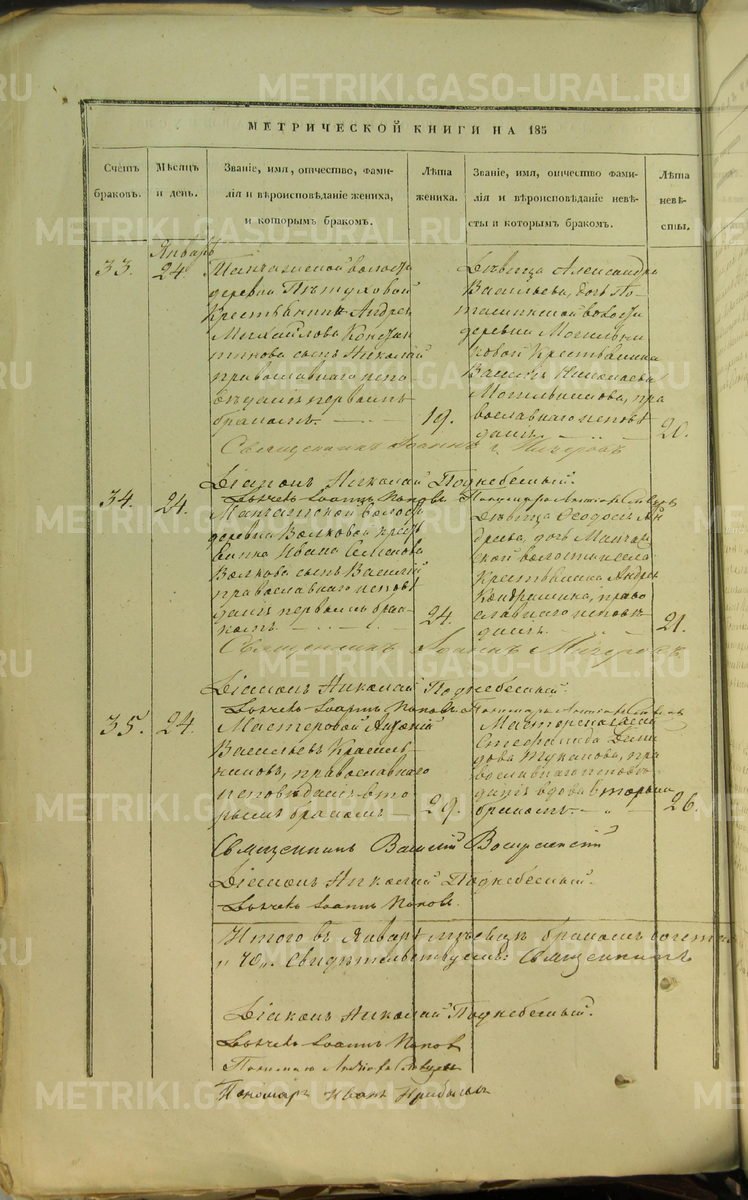 МЕТРИЧЕСКОЙ КНИГИ НА 185
Счетъ
браковъ.
Мѣсяцъ
и день.
Званіе, имя, отчество, фами-
лія и вѣроисповѣданіе жениха,
и которымъ бракомъ.
Лѣта
жениха.
Званіе, имя, отчество фами-
лія и вѣроисповѣданіе невѣ-
сты и которымъ бракомъ.
Лѣта
невѣ-
сты.
Январь
33.
24.
волости
деревни Пѣтуховой
Крестьянина Андрея
Михайлова Констан
тинова сынъ Николай
православнаго испо
вѣданія первымъ
бракомъ.
19.
Дѣвица Александра
Васильева, дочь По
ташинской волости
деревни Могильни
ковой Крестьянина
Василья Николаева
Могильникова, пра
вославнаго исповѣ
данія.
20.
Священникъ Іоаннъ
Діаконъ Николай Поднебесный.
Дьячекъ Іоаннъ Поповъ.
34.
24.
Манчажской волости
деревни Волковой крестья
нина Ивана Семенова
Волкова сынъ Василій
православнаго исповѣ
данія первымъ бра
комъ.
24.
Дѣвица Ѳеодосія Ан
дреева, дочь Манчаж
ской волости и села
Крестьянина Андрея
Кондрашина, право
славнаго исповѣ
данія.
21.
Священникъ Іоаннъ
Діаконъ Николай Поднебесный.
Дьячекъ Іоаннъ Поповъ.
35.
24.
Мастеровой
Васильевъ Красиль
никовъ, православнаго
исповѣданія вто
рымъ бракомъ
29.
Мастерская
Стефанида Деми
дова Туканова, пра
вославнаго исповѣ
данія вдова вторымъ
бракомъ.
26.
Священникъ Василій Воскресенскій
Діаконъ Николай Поднебесный.
Дьячекъ Іоаннъ Поповъ.
Итого въ Январѣ мѣсяцѣ бракомъ сочетано
Свидѣтельствуемъ: Священникъ
Діаконъ Николай Поднебесный.
Дьячекъ Іоаннъ Поповъ
Пономарь
Пономарь Иванъ
METRIKI.GASO-URAL.RU